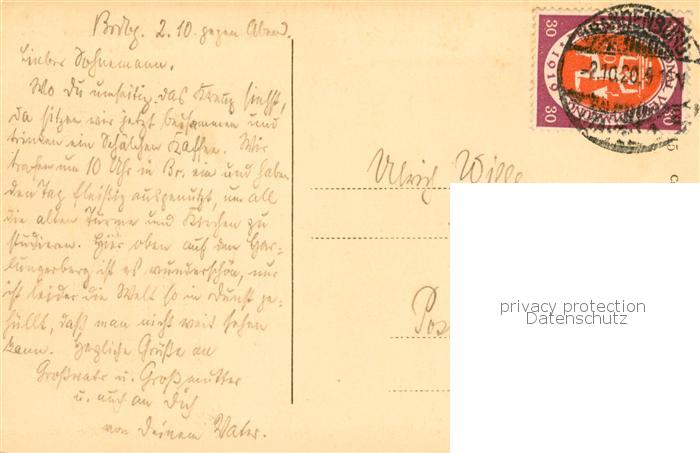 Brdbg. 2.10. gegen Abend.
Lieber Sohnemann.
Wo du umseitig das Kreuz siehst,
da sitzen wir jetzt beisammen und
trinken ein Schälchen Kaffee. Wir
trafen um 10 Uhr in Br. ein und haben
den Tag fleißig ausgenutzt, um all
die alten Türme und Kirchen zu
studieren. Hier oben auf dem Har-
lungerberg ist es wunderschön, nur
ist leider die Welt so in Dunst ge-
hüllt, daß man nicht weit sehen
kann. Herzliche Grüße an
Großvater u. Großmutter
u. auch an Dich
von Deinem Vater.
30 30
1919
BRANDENBURG
-2.10.20.
30 30
Ulrich Wille
Pos
privacy protection
Datenschutz